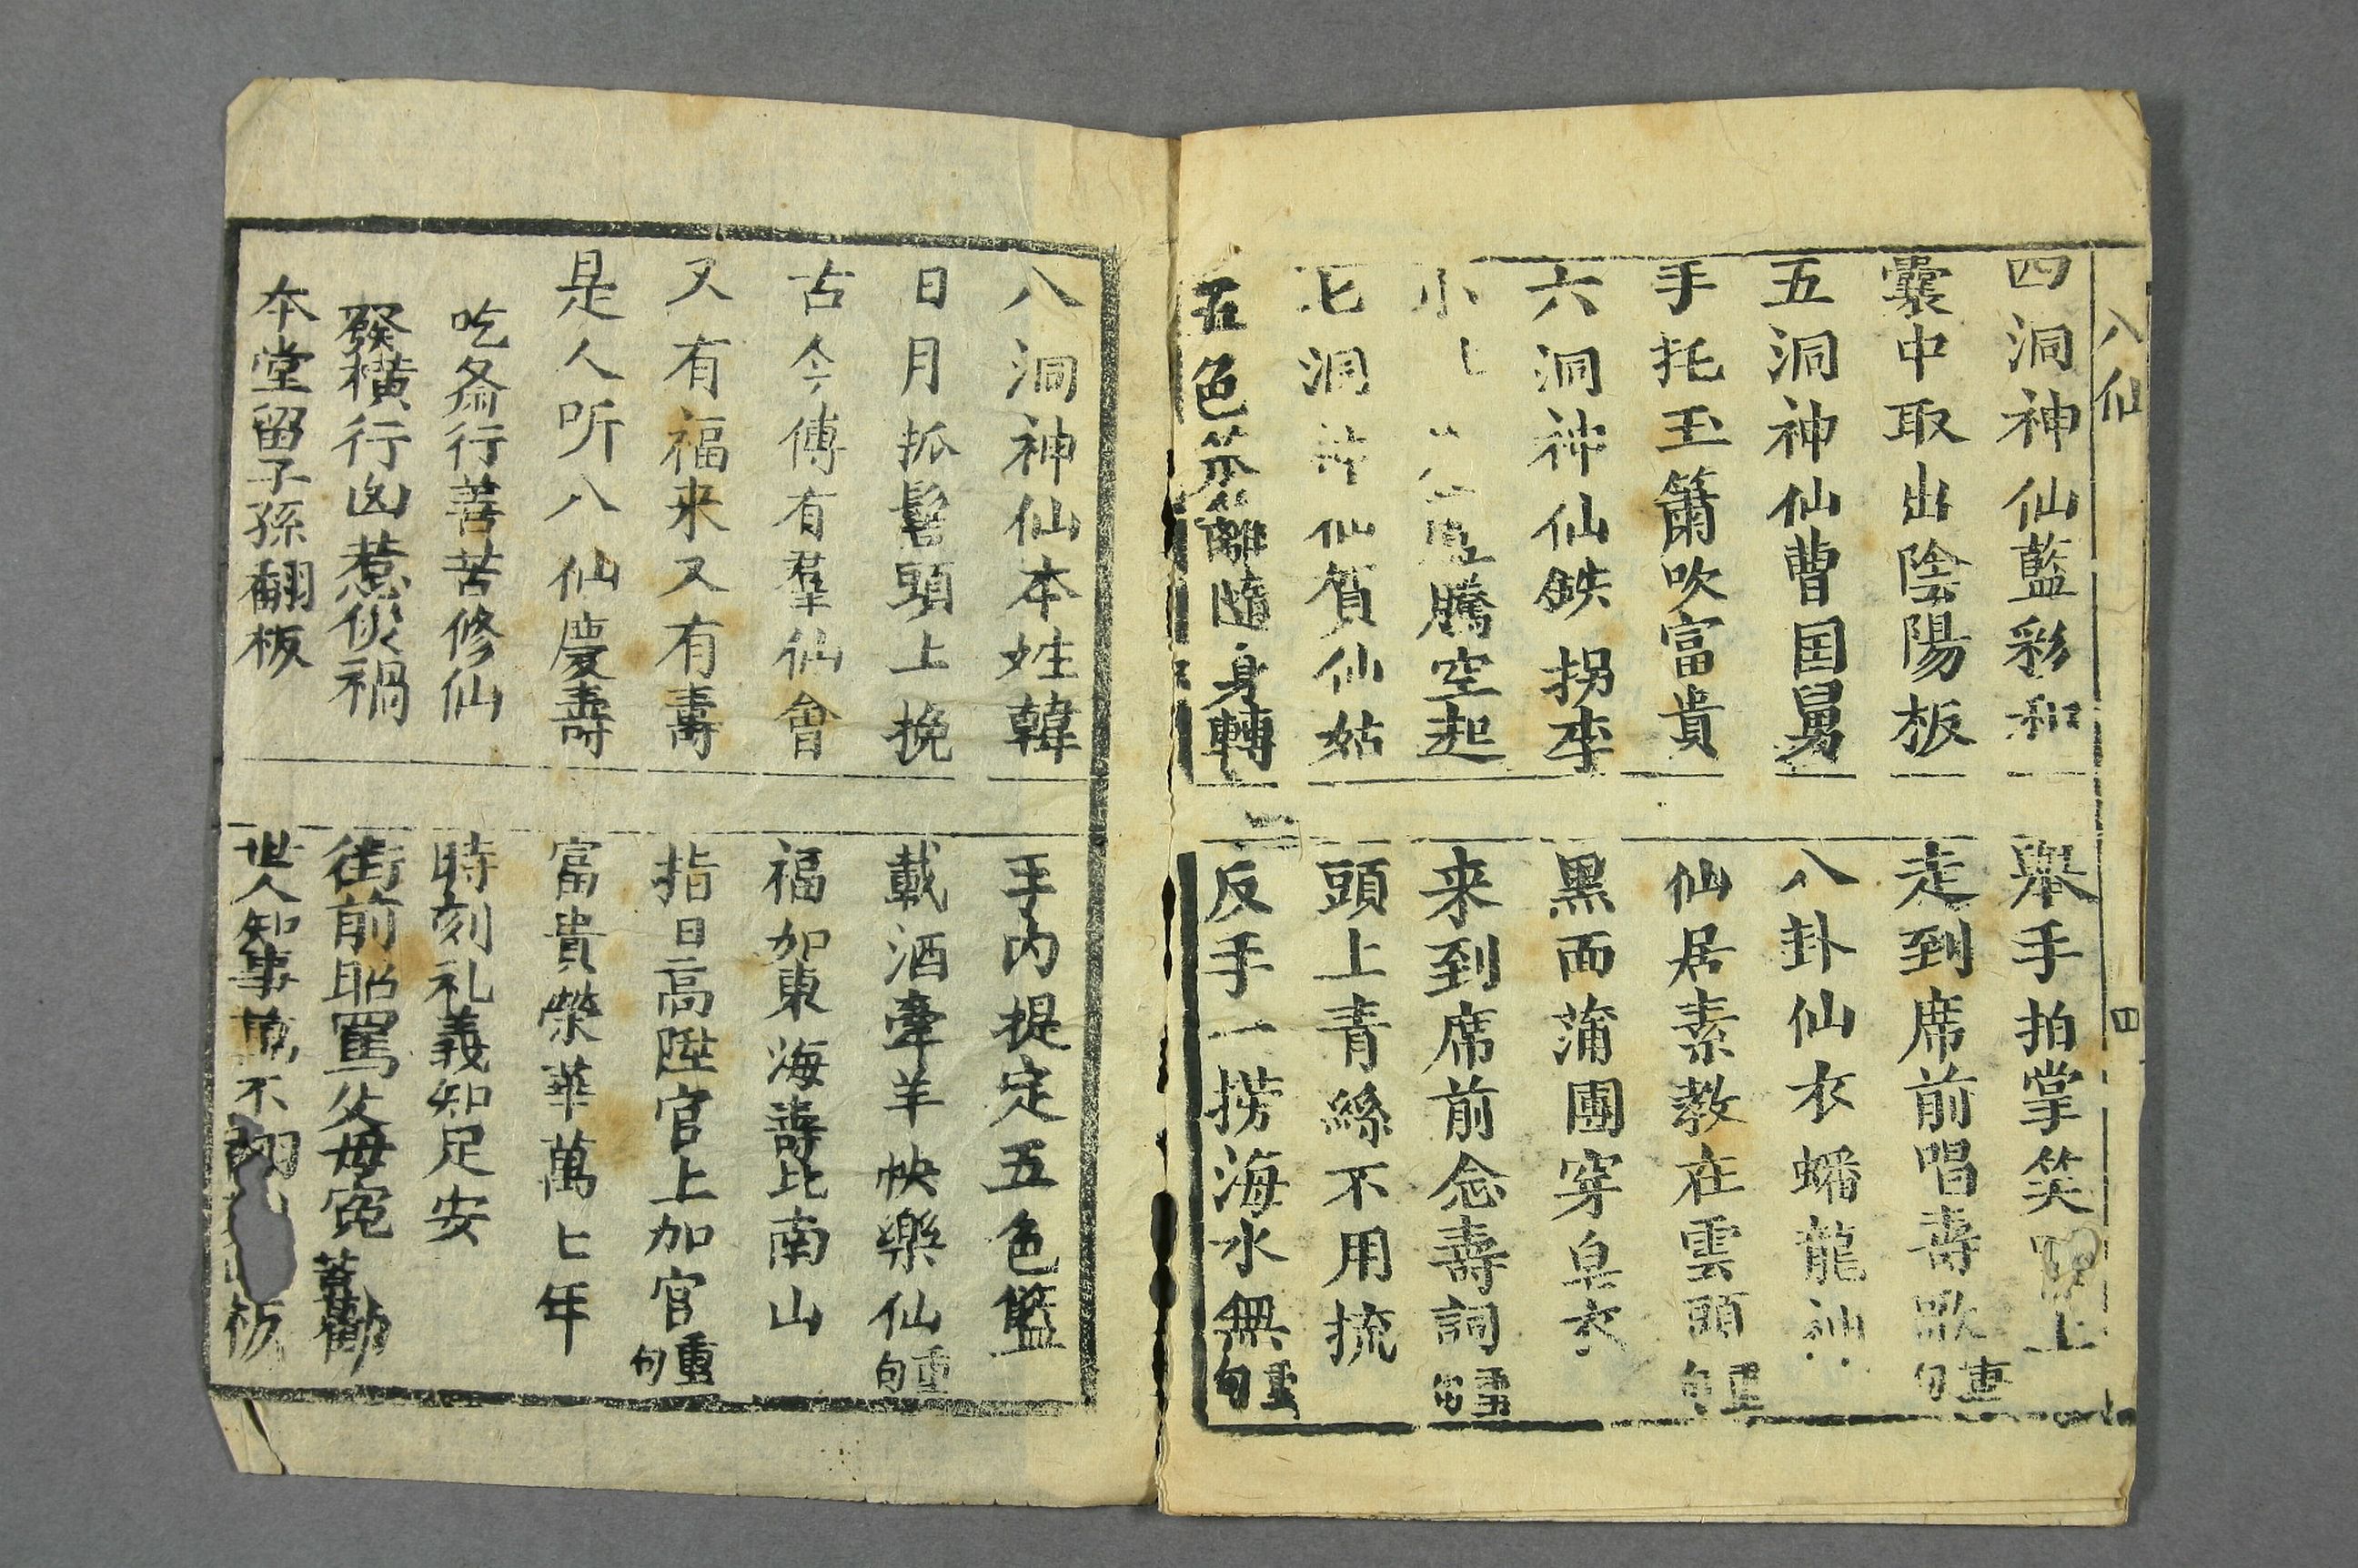 八仙
四
四洞神仙藍彩和
舉手拍掌笑上
囊中取出陰陽板
走到席前唱壽歌
重句
五洞神仙曹国舅
八卦仙衣蟠龍
手托玉簫吹富貴
仙居素教在雲頭
重句
六洞神仙鉄拐李
黑面蒲團穿皂衣
小騰空起
来到席前念壽詞
重句
七洞神仙賀仙姑
頭上青絲不用梳
五色笊籬隨身轉
反手一撈海水無
重句
八洞神仙本姓韓
手内提定五色籃
日月抓髻頭上挽
載酒牽羊快樂仙
重句
古今傳有羣仙會
福如東海壽比南山
又有福来又有壽
指日高陞官上加官
重句
是人听八仙慶壽
富貴榮華萬七年
吃斋行善苦修仙
時刻礼義知足安
發横行凶惹災禍
街前昭罵父母寃
善勸
本堂留子孫翻板
世人知事萬不翻板